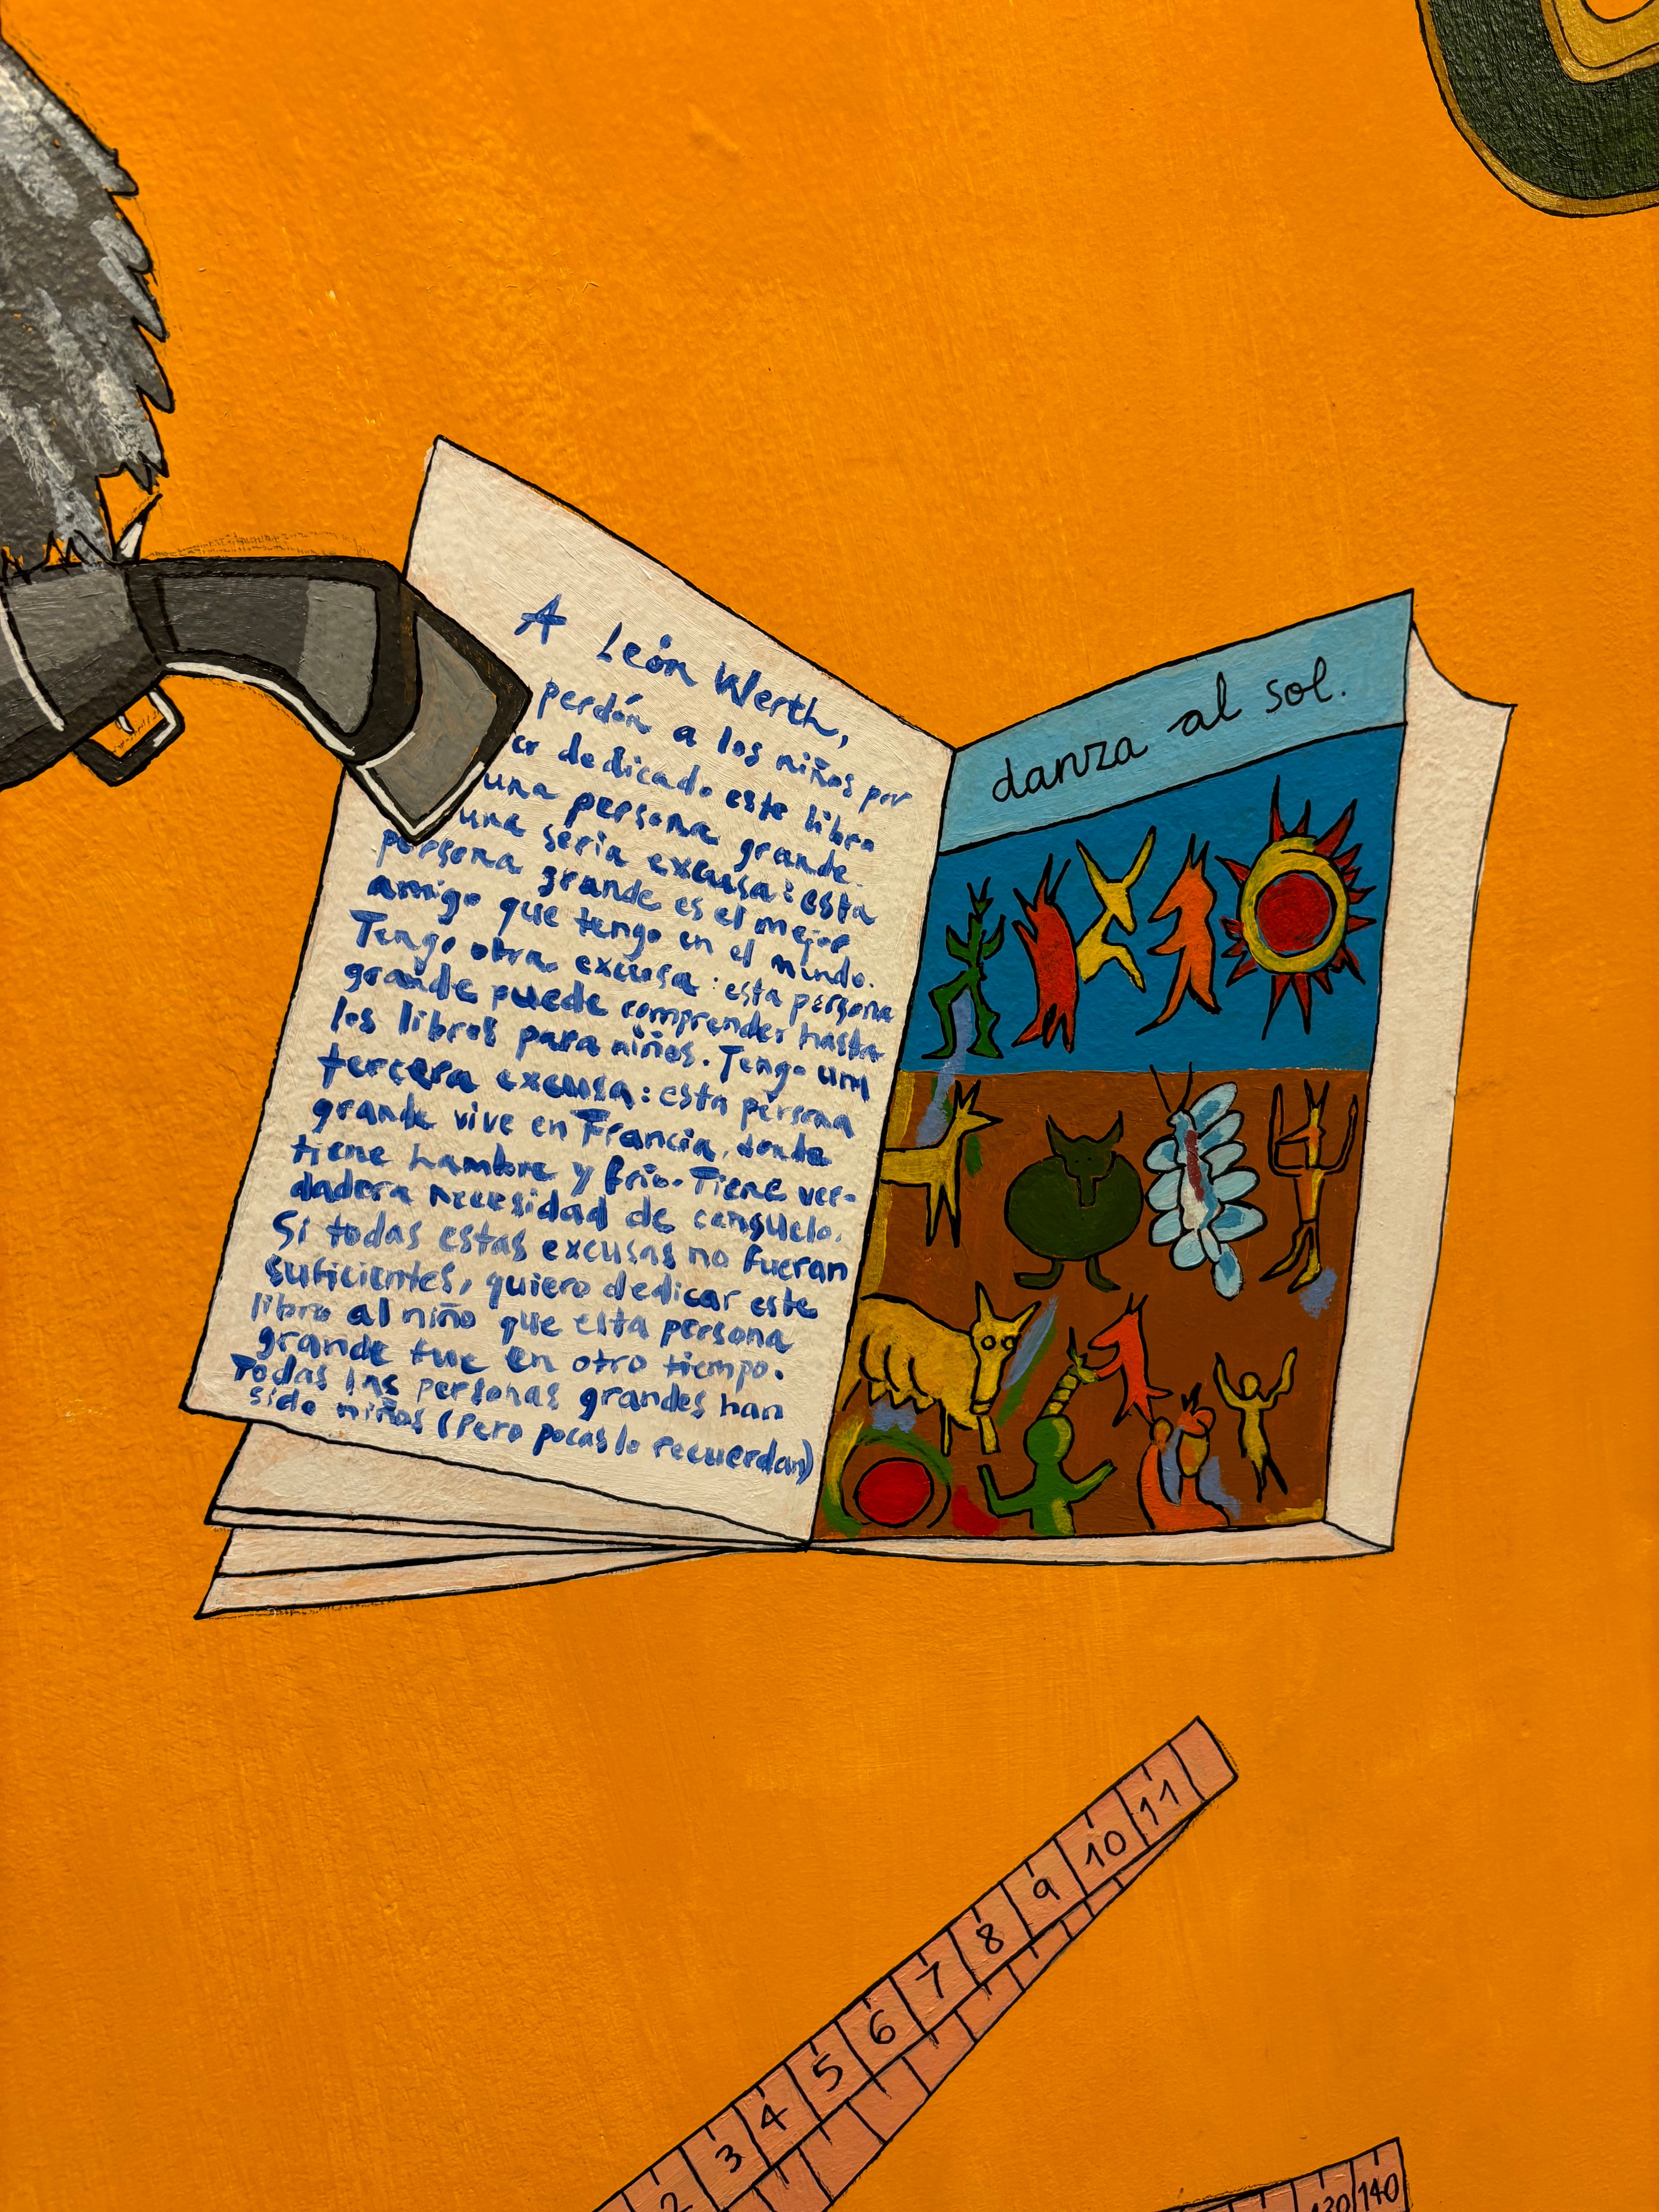 A León Werth,
perdón a los niños por
er dedicado este libro
una persona grande.
una seria excusa: esta
persona grande es el mejor
amigo que tengo en el mundo.
Tengo otra excusa: esta persona
grande puede comprender hasta
los libros para niños. Tengo una
tercera excusa: esta persona
grande vive en Francia, donde
tiene hambre y frío. Tiene ver-
dadera necesidad de consuelo.
Si todas estas excusas no fueran
suficientes, quiero dedicar este
libro al niño que esta persona
grande fue en otro tiempo.
Todas las personas grandes han
sido niños (Pero pocas lo recuerdan)
danza al sol.
2 3 4 5 6 7 8 9 10 11
130 140